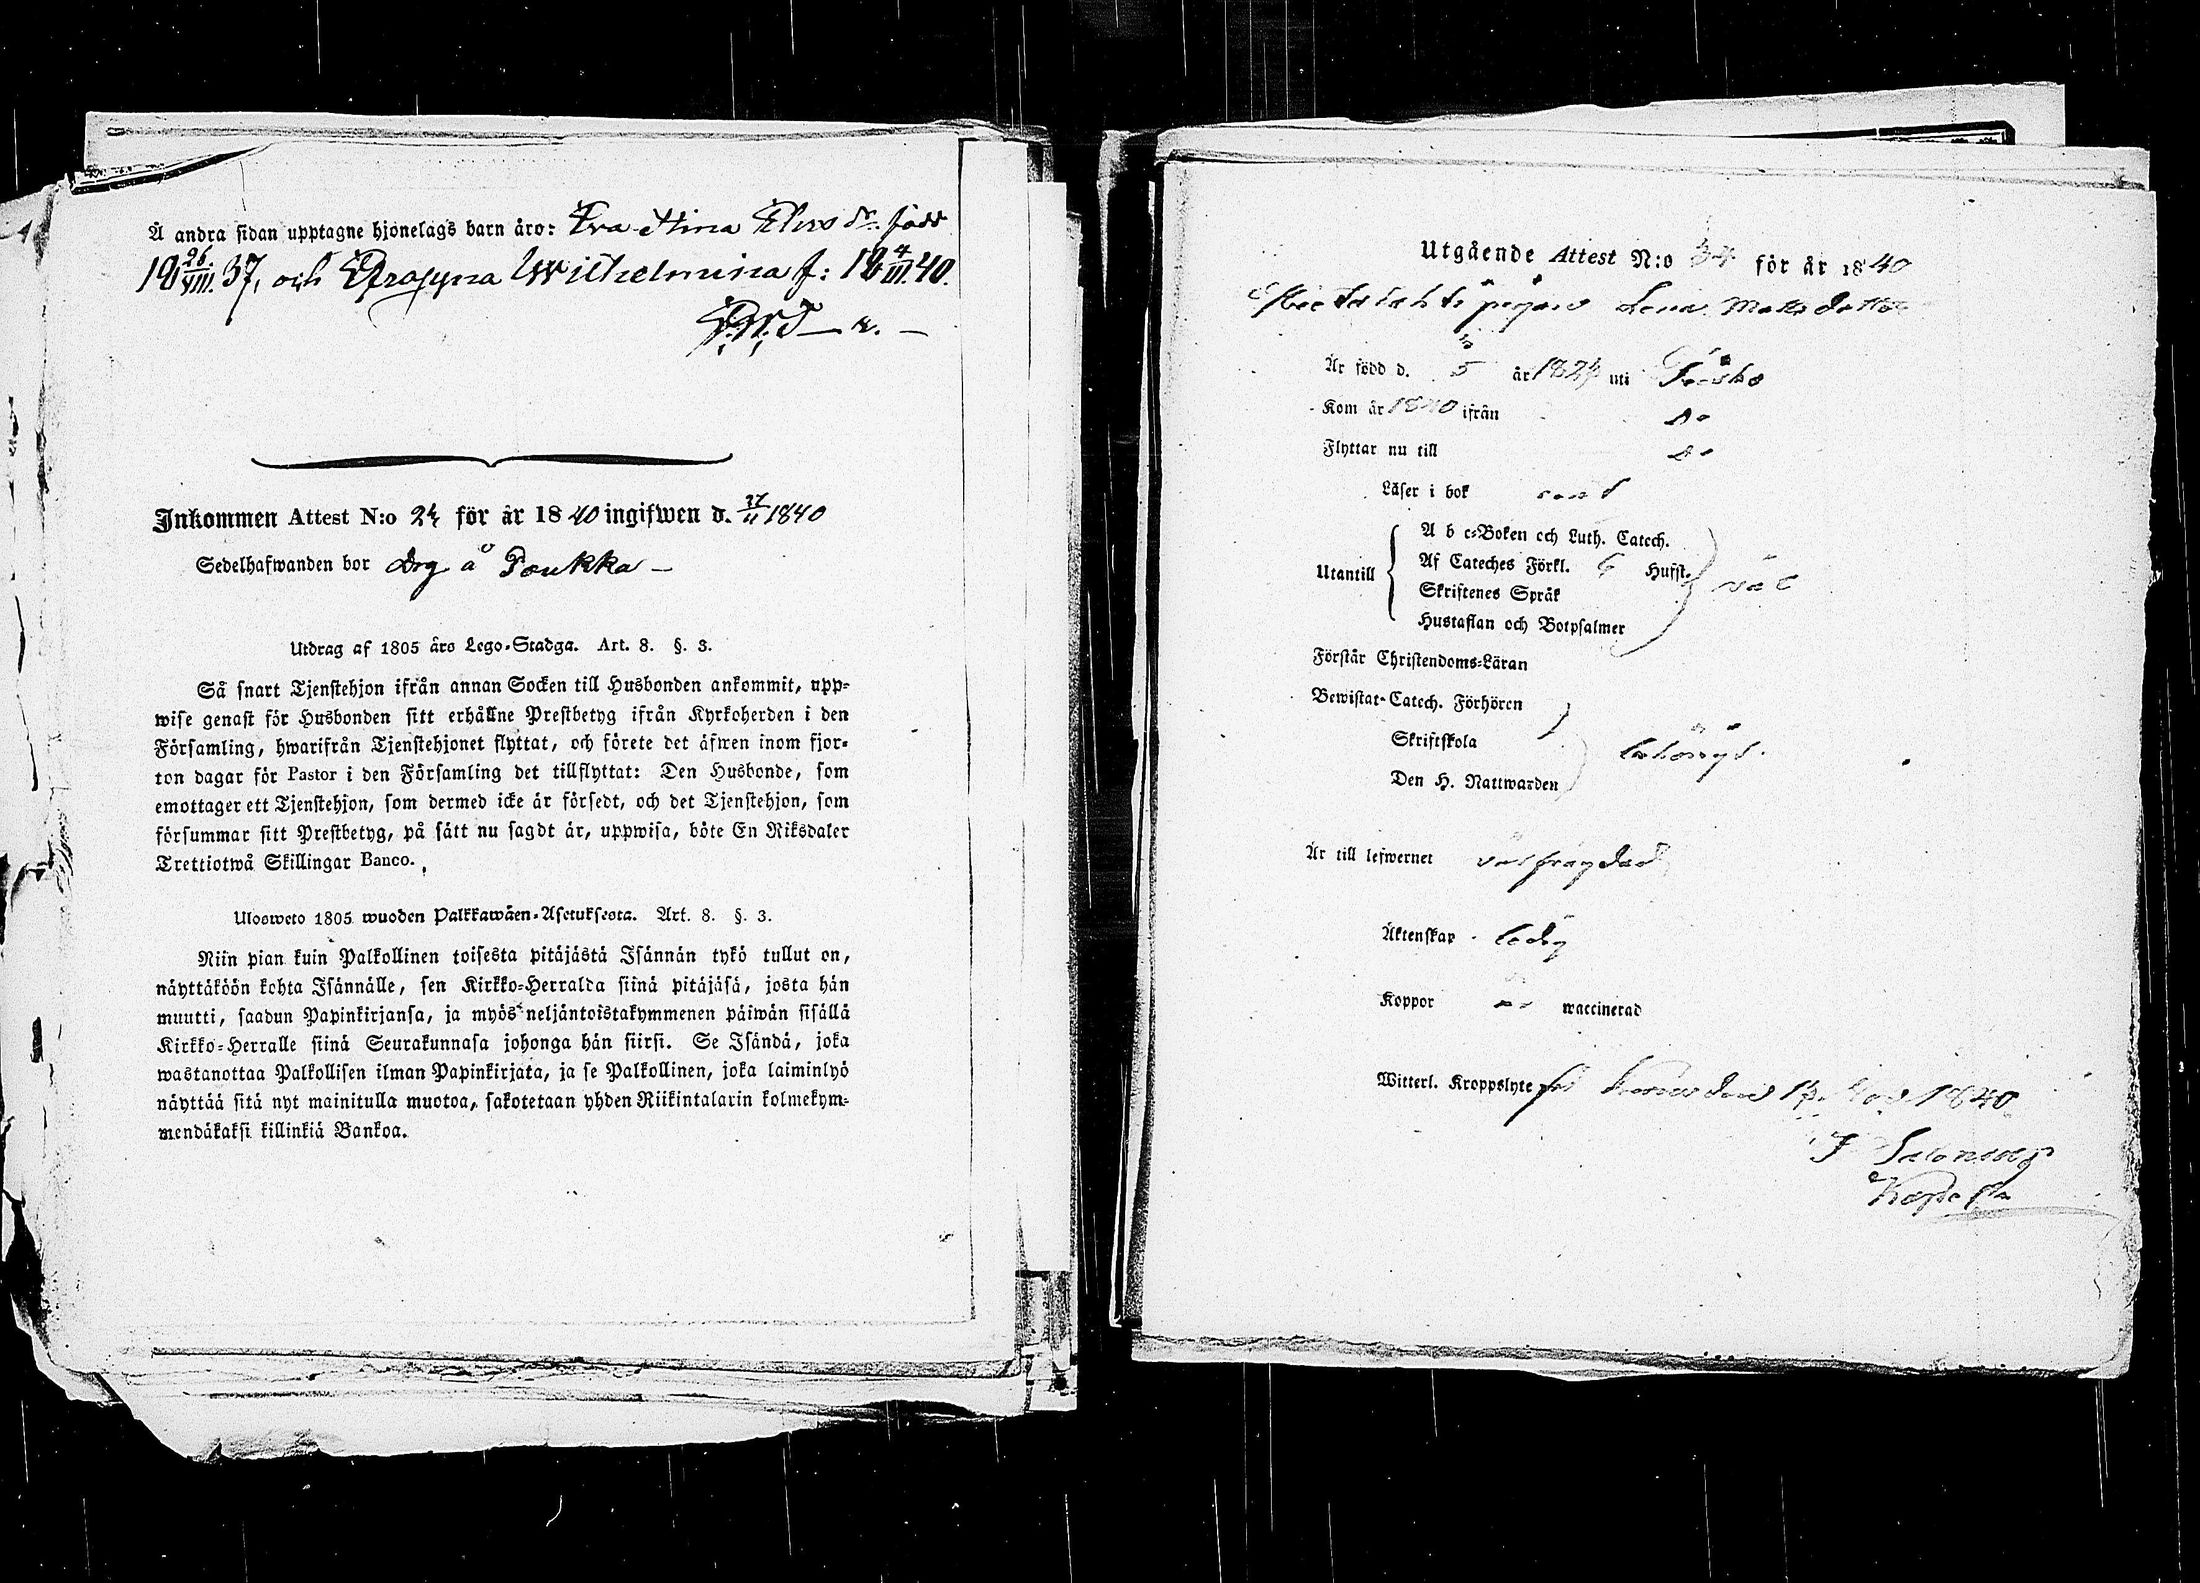 Å andra sidan upptagne hjonelags barn äro: Eva Stina Elias dr. född
18 26/VIII. 37, och Efrosyna Wilhelmina f: 18 4/III. 40.
Inkommen Attest N:o 24 för år 1840 ingifwen d. 27/11 1840
Sedelhafwanden bor Drg å Poukka –
Utdrag af 1805 års Lego-Stadga. Art. 8. §. 3.
Så snart Tjenstehjon ifrån annan Socken till Husbonden ankommit, upp-
wise genast för Husbonden sitt erhållne Prestbetyg ifrån Kyrkoherden i den
Församling, hwarifrån Tjenstehjonet flyttat, och förete det äfwen inom fjor-
ton dagar för Pastor i den Församling det tillflyttat: Den Husbonde, som
emottager ett Tjenstehjon, som dermed icke är försedt, och det Tjenstehjon, som
försummar sitt Prestbetyg, på sätt nu sagdt är, uppwisa, böte En Riksdaler
Trettiotwå Skillingar Banco.
Ulosweto 1805 wuoden Palkkawäen-Asetuksesta. Art. 8. §. 3.
Niin pian kuin Palkollinen toisesta pitäjästä Isännän tykö tullut on,
näyttäköön kohta Isännälle, sen Kirkko-Herralda siinä pitäjäsä, josta hän
muutti, saadun Papinkirjansa, ja myös neljäntoistakymmenen päiwän sisällä
Kirkko-Herralle siinä Seurakunnasa johonga hän siirsi. Se Isändä, joka
wastanottaa Palkollisen ilman Papinkirjata, ja se Palkollinen, joka laiminlyö
näyttää sitä nyt mainitulla muotoa, sakotetaan yhden Riikintalarin kolmekym-
mendäkaksi killinkiä Bankoa.
Utgående Attest N:o 34 för år 1840
pigan Lena Matsdotter
Är född d. 5 år 1824 uti
Kom år 1840 ifrån Do
Flyttar nu till Do
Läser i bok
Utantill
A b c-Boken och Luth. Catech.
Af Cateches Förkl. 6 Hufst. väl
Skriftenes Språk
Hustaflan och Botpsalmer
Förstår Christendoms-Läran
Bewistat Catech. Förhören
Skriftskola
Den H. Nattwarden
Är till lefwernet välfrägdad
Äktenskap ledig
Koppor waccinerad
Witterl. Kroppslyte fri Nov 1840